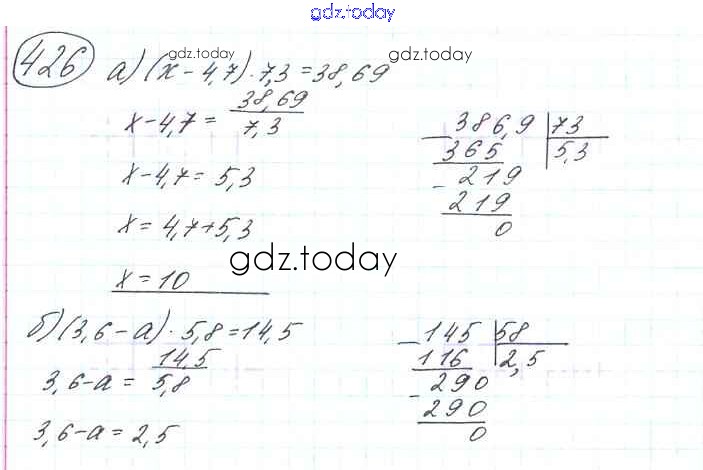 gdz.today
426
gdz.today
gdz.today
а) (x - 4,7) · 7,3 = 38,69
x - 4,7 = 38,69 / 7,3
x - 4,7 = 5,3
x = 4,7 + 5,3
x = 10
386,9 | 73
365 | 5,3
- 219
219
0
gdz.today
б) (3,6 - a) · 5,8 = 14,5
3,6 - a = 14,5 / 5,8
3,6 - a = 2,5
- 145 | 58
116 | 2,5
- 290
290
0